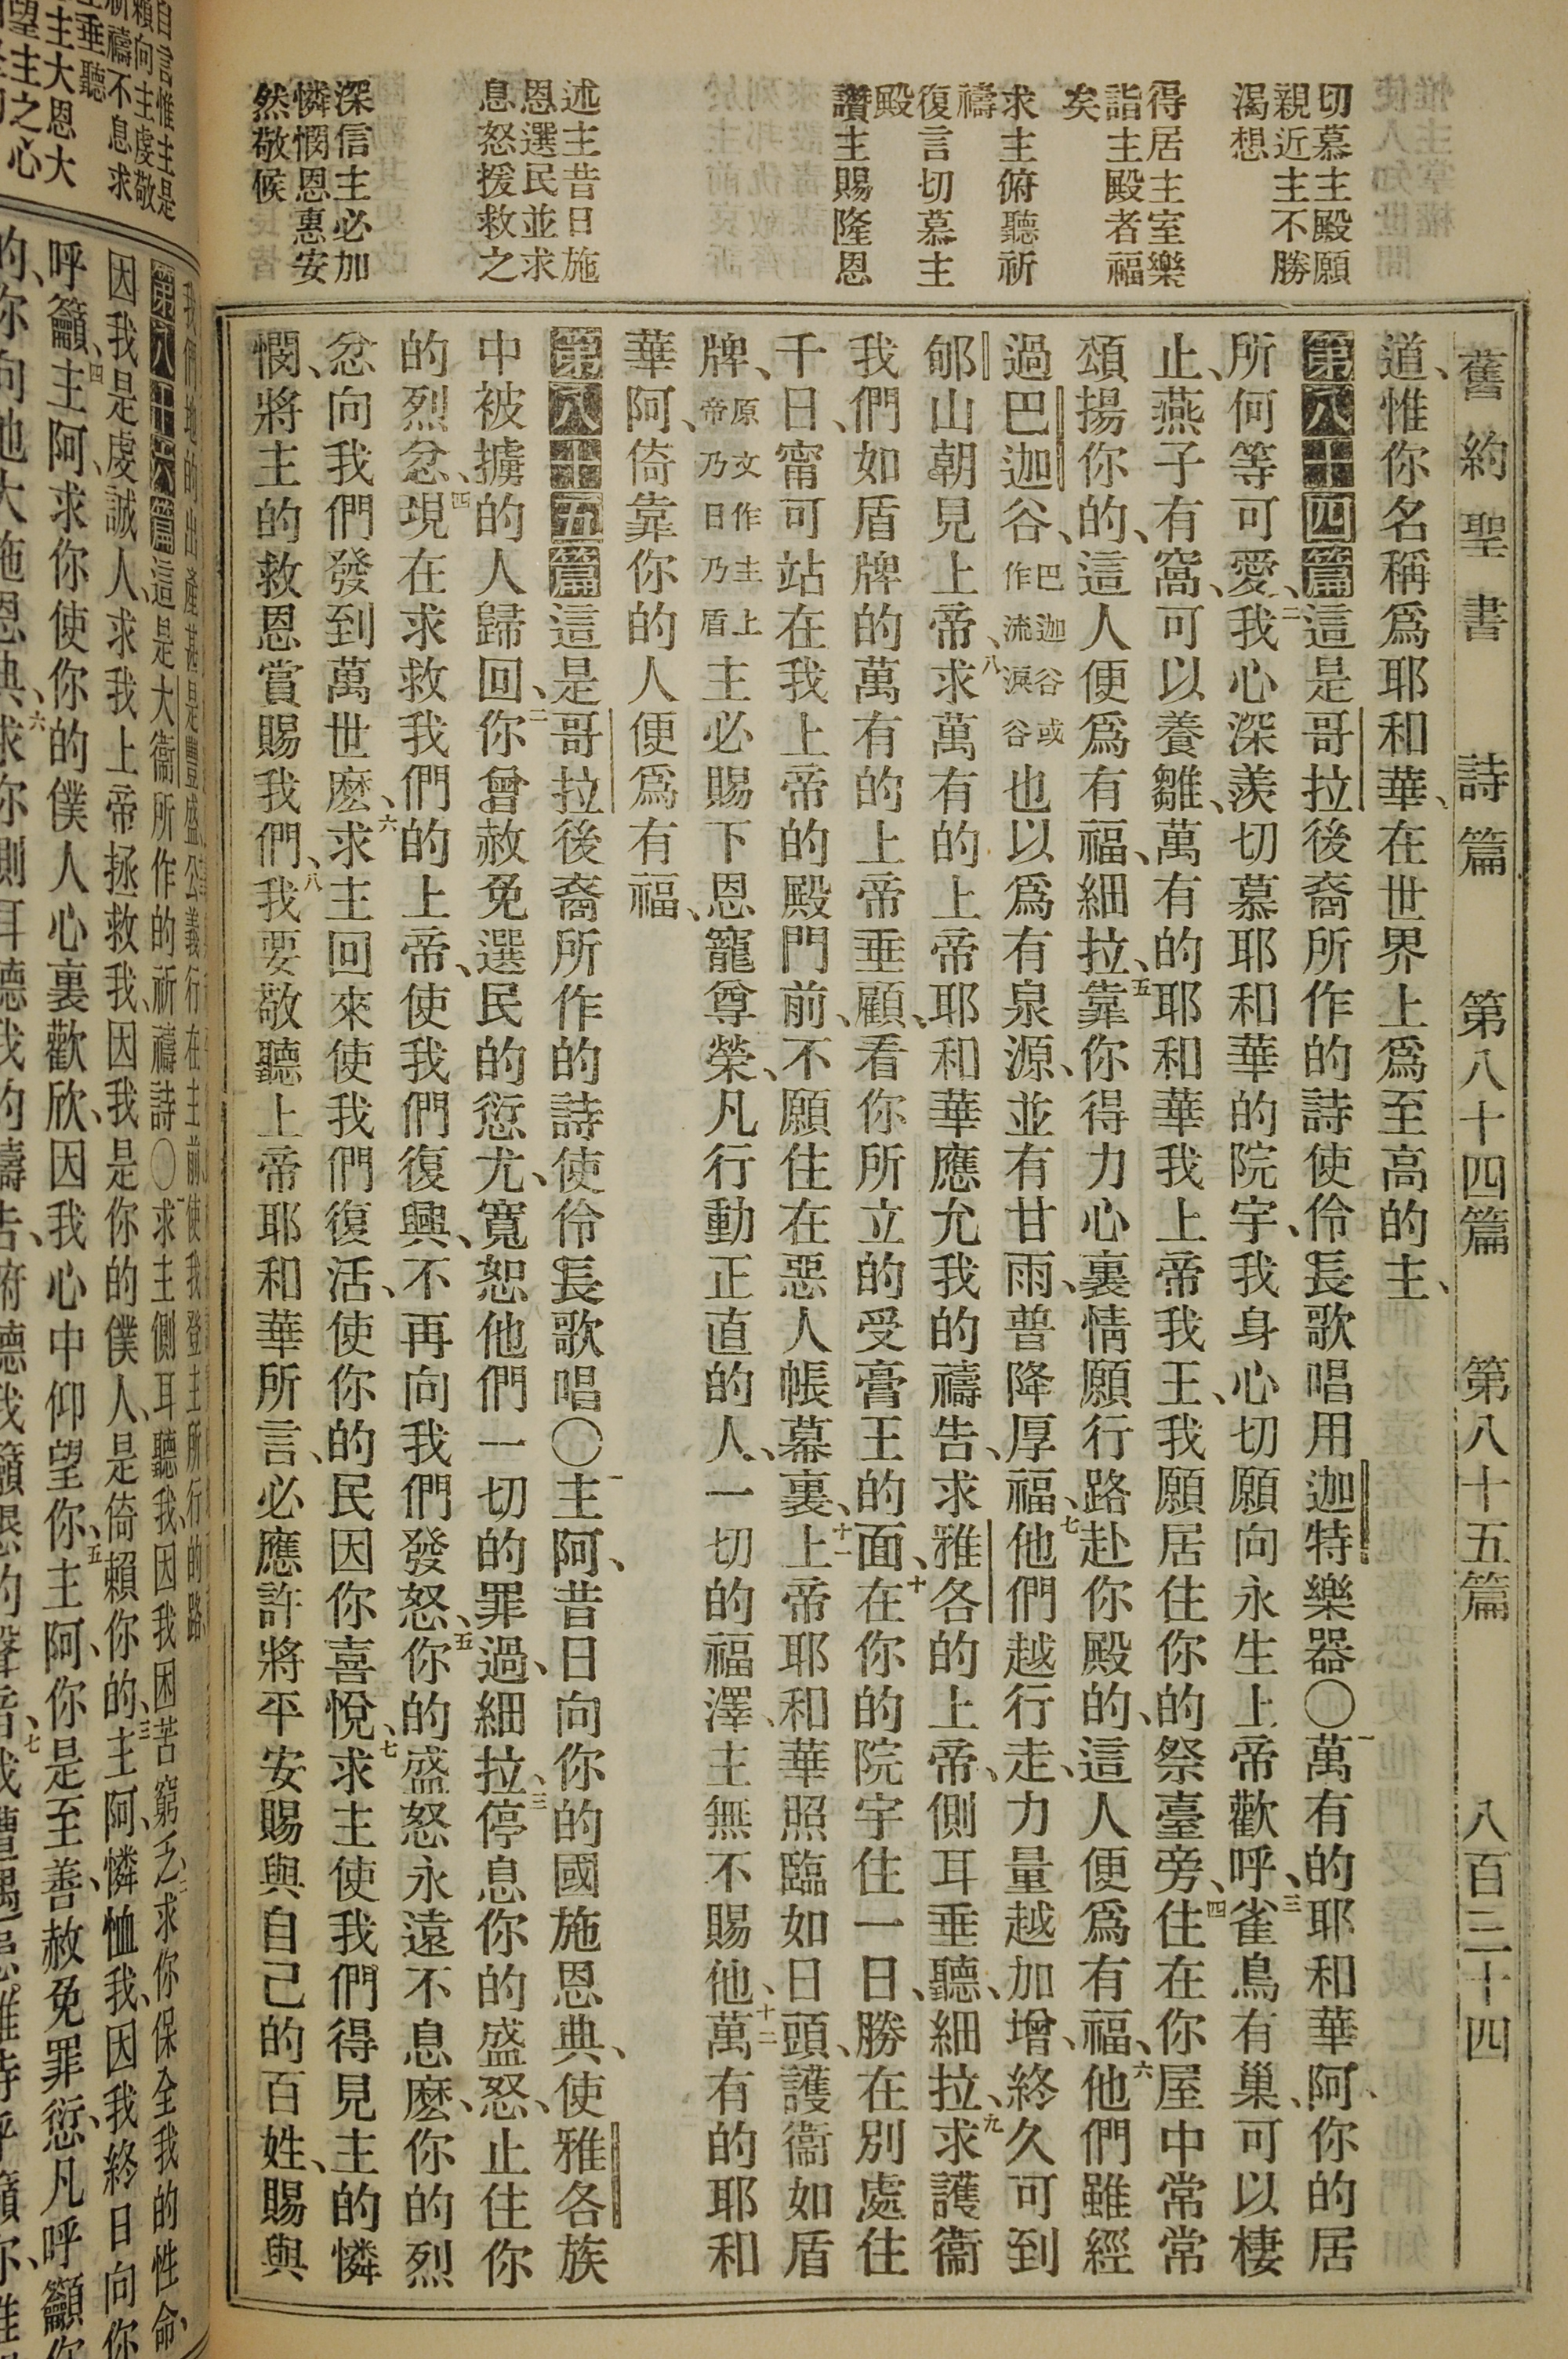 舊約聖書 詩篇 第八十四篇 第八十五篇 八百三十四
切慕主殿願
親近主不勝
渴想
得居主室樂
詣主殿者福
矣
求主俯聽祈
禱
復言切慕主
殿
讚主賜隆恩
述主昔日施
恩選民並求
息怒援救之
深信主必加
憐憫恩惠安
然敬候
道、惟你名稱爲耶和華、在世界上爲至高的主、
第八十四篇這是哥拉後裔所作的詩使伶長歌唱用迦特樂器〇一萬有的耶和華阿、你的居
所何等可愛、二我心深羨切慕耶和華的院宇、我身心切願向永生上帝歡呼、三雀鳥有巢、可以棲
止、燕子有窩、可以養雛、萬有的耶和華我上帝我王、我願居住你的祭臺旁、四住在你屋中常常
頌揚你的、這人便爲有福、細拉、五靠你得力心裏情願行路赴你殿的、這人便爲有福、六他們雖經
過巴迦谷、巴迦谷或作流淚谷也以爲有泉源、並有甘雨、普降厚福、七他們越行走、力量越加增、終久可到
郇山朝見上帝、八求萬有的上帝耶和華應允我的禱告、求雅各的上帝、側耳垂聽、細拉、九求護衞
我們如盾牌的萬有的上帝垂顧、看你所立的受膏王的面、十在你的院宇住一日、勝在別處住
千日、甯可站在我上帝的殿門前、不願住在惡人帳幕裏、十一上帝耶和華照臨如日頭、護衞如盾
牌、原文作主上帝乃日乃盾主必賜下恩寵尊榮、凡行動正直的人、一切的福澤、主無不賜他、十二萬有的耶和
華阿、倚靠你的人便爲有福、
第八十五篇這是哥拉後裔所作的詩使伶長歌唱〇一主阿、昔日向你的國施恩典、使雅各族
中被擄的人歸回、二你曾赦免選民的愆尤、寬恕他們一切的罪過、細拉、三停息你的盛怒、止住你
的烈忿、四現在求救我們的上帝、使我們復興、不再向我們發怒、五你的盛怒永遠不息麽、你的烈
忿向我們發到萬世麽、六求主回來使我們復活、使你的民因你喜悅、七求主使我們得見主的憐
憫、將主的救恩賞賜我們、八我要敬聽上帝耶和華所言、必應許將平安賜與自己的百姓、賜與
我們地的出產甚是豐盛公義行在主前使我登主所行的路
第八十六篇這是大衞所作的祈禱詩〇一求主側耳聽我、因我困苦窮乏、二求你保全我的性命、
因我是虔誠人、求我上帝拯救我、因我是你的僕人、是倚賴你的、三主阿、憐恤我、因我終日向你
呼籲、四主阿、求你使你的僕人心裏歡欣、因我心中仰望你、五主阿、你是至善、赦免罪愆、凡呼籲你